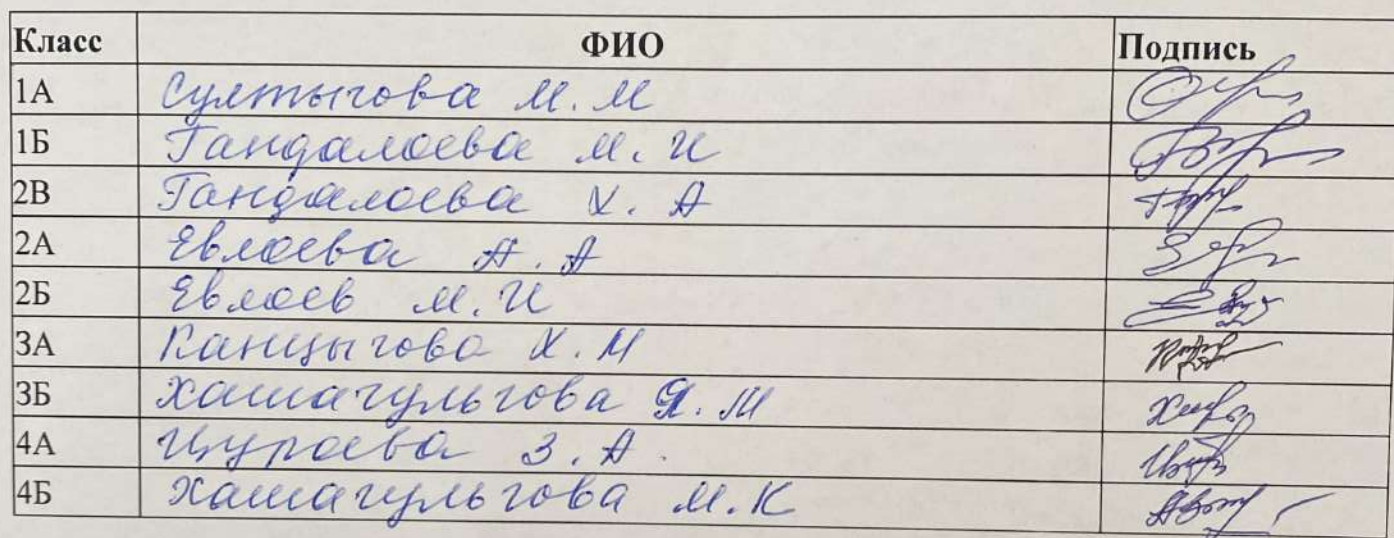 Класс ФИО Подпись
1А Султыгова М.М
1Б Гандалоева М.И
2В Гандалоева Х.А
2А Евлоева А.А
2Б Евлоев М.И
3А Канцыгова Х.М
3Б Хашагульгова Я.М
4А Цуроева З.А.
4Б Хашагульгова М.К